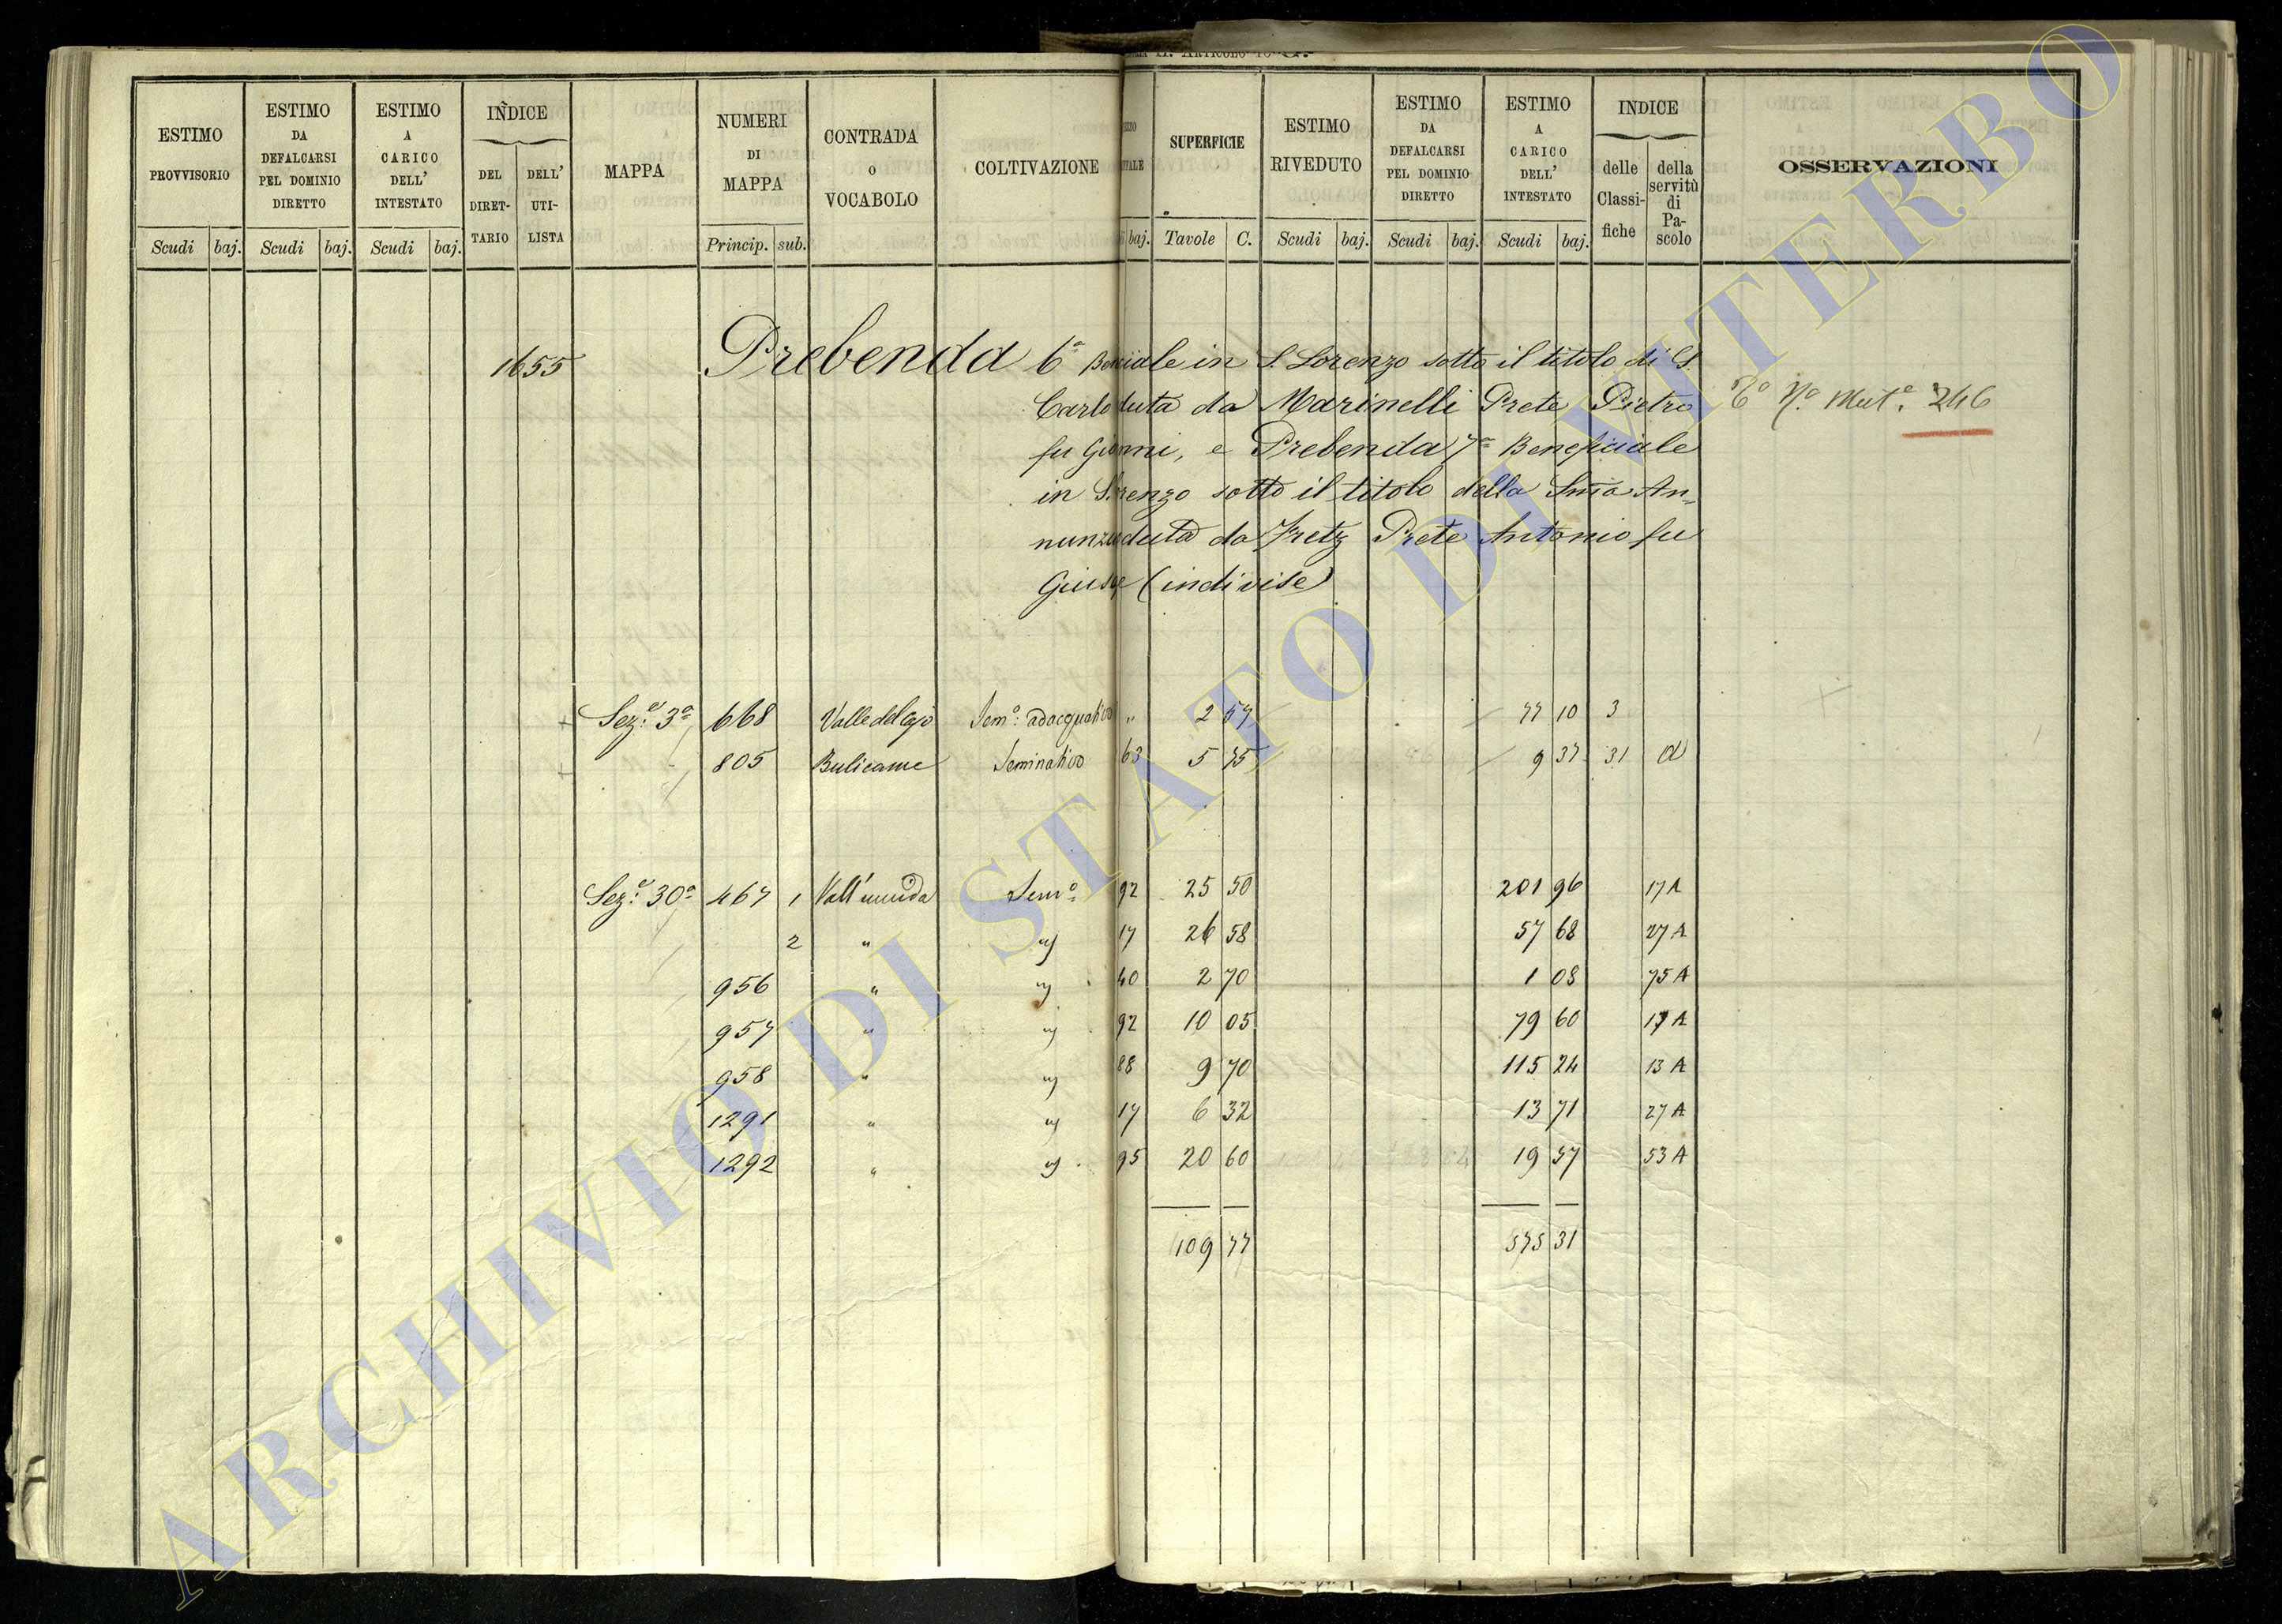 ARTICOLO
ESTIMO PROVVISORIO
Scudi baj.
ESTIMO DA DEFALCARSI PEL DOMINIO DIRETTO
Scudi baj.
ESTIMO A CARICO DELL' INTESTATO
Scudi baj.
INDICE
DEL DIRET- TARIO
DELL' UTI- LISTA
MAPPA
NUMERI DI MAPPA
Princip. sub.
CONTRADA o VOCABOLO
COLTIVAZIONE
baj.
SUPERFICIE
Tavole C.
ESTIMO RIVEDUTO
Scudi baj.
ESTIMO DA DEFALCARSI PEL DOMINIO DIRETTO
Scudi baj.
ESTIMO A CARICO DELL' INTESTATO
Scudi baj.
INDICE
delle Classi- fiche
della servitù di Pa- scolo
OSSERVAZIONI
1655 Prebenda 6a iale in S. Lorenzo sotto il titolo di S.
Carlo duta da Marinelli Prete Pietro
fu nni, e Prebenda 7a Beneficiale
in S. renzo sotto il titolo della Sma An=
nunz duta da Fretz Prete Antonio fu
Gius (indivise)
No Mut.e 246
Sez.e 3a 668 Valle del Cajo Sem.o adacquativo " 2 57 77 10 3
805 Bulicame Seminativo 63 5 75 9 37 31 a
Sez.e 30a 467 1 Vall'umida Sem.o 92 25 50 201 96 17 A
2 " " 17 26 58 57 68 27 A
956 " " 40 2 70 1 08 75 A
957 " " 92 10 05 79 60 17 A
958 " " 88 9 70 115 24 13 A
1291 " " 17 6 32 13 71 27 A
1292 " " 95 20 60 19 57 53 A
109 77 575 31
ARCHIVIO DI STATO DI VITERBO